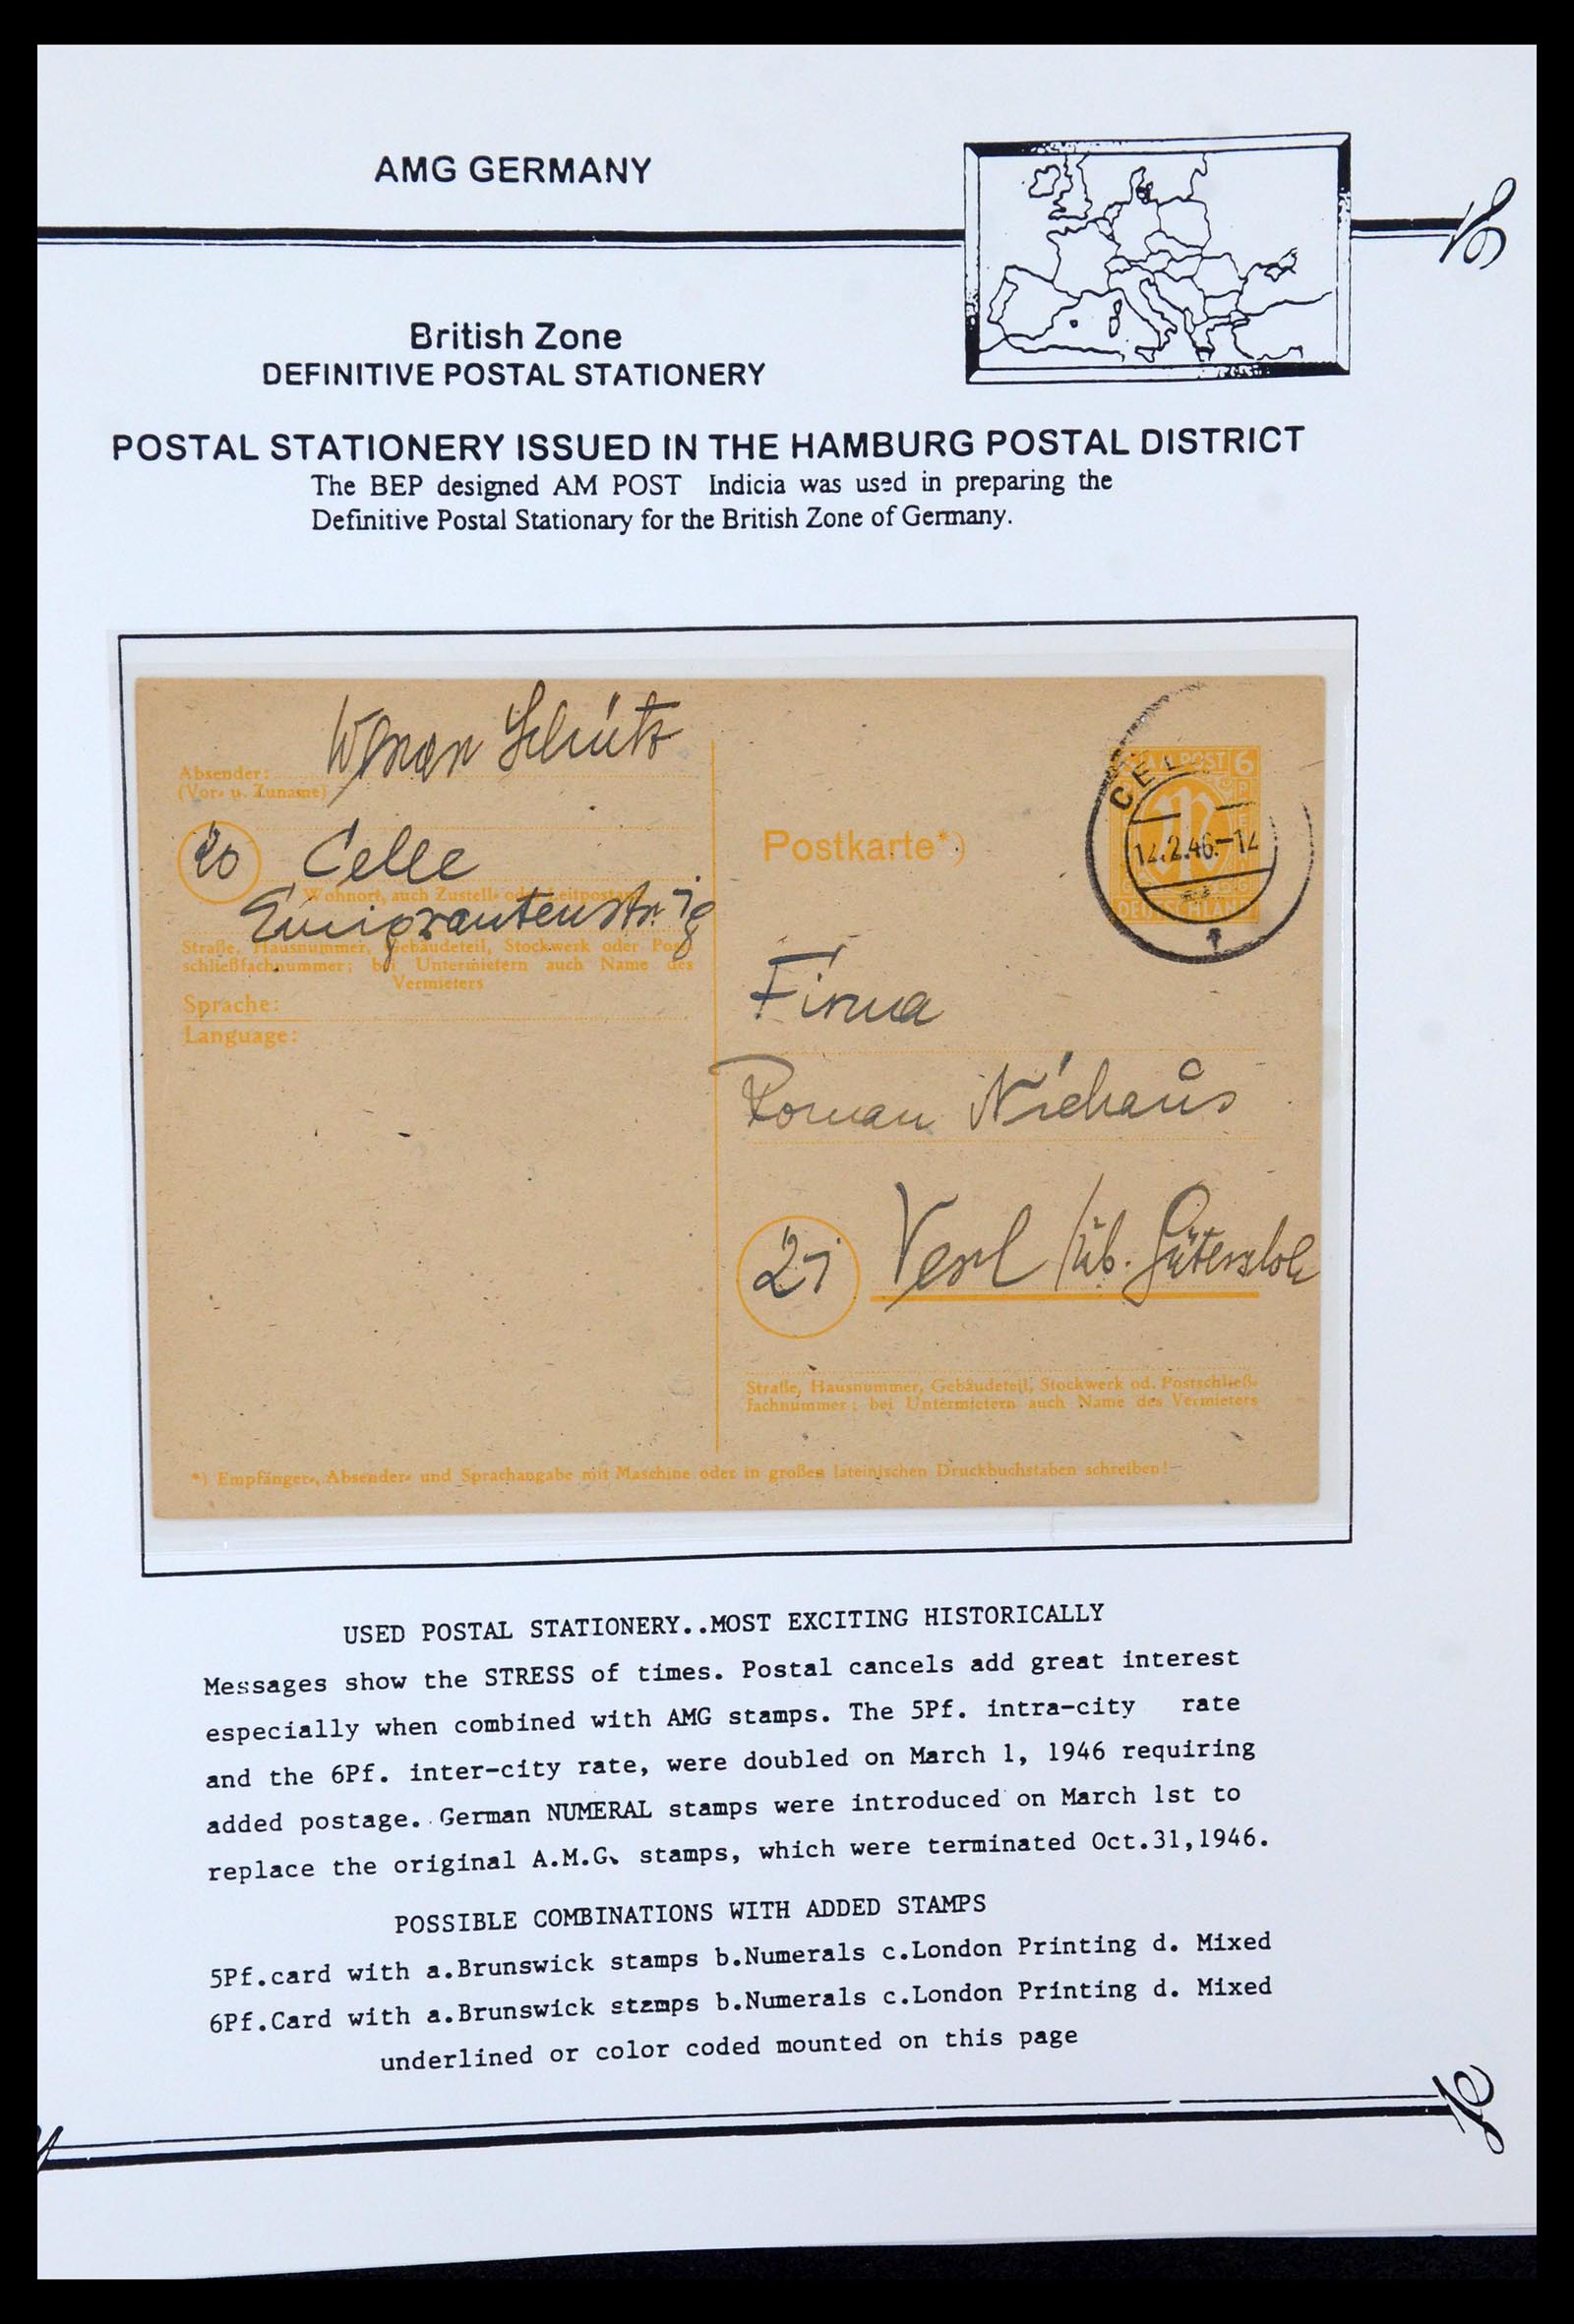 AMG GERMANY
British Zone
DEFINITIVE POSTAL STATIONERY
POSTAL STATIONERY ISSUED IN THE HAMBURG POSTAL DISTRICT
The BEP designed AM POST Indicia was used in preparing the
Definitive Postal Stationary for the British Zone of Germany.
Absender:
(Vor- u. Zuname)
Werner Schütz
20 Celle
Wohnort, auch Zustell- oder Leitpostamt
Emigrantenstr.
Straße, Hausnummer, Gebäudeteil, Stockwerk oder Post-
schließfachnummer; bei Untermietern auch Name des
Vermieters
Sprache:
Language:
Postkarte*)
AM POST 6
DEUTSCHLAND
CEL
12.2.46.-12
Firma
Roman Niehaus
21 Verl / üb. Gütersloh
Straße, Hausnummer, Gebäudeteil, Stockwerk od. Postschließ-
fachnummer; bei Untermietern auch Name des Vermieters
*) Empfänger-, Absender- und Sprachangabe mit Maschine oder in großen lateinischen Druckbuchstaben schreiben!
USED POSTAL STATIONERY..MOST EXCITING HISTORICALLY
Messages show the STRESS of times. Postal cancels add great interest
especially when combined with AMG stamps. The 5Pf. intra-city rate
and the 6Pf. inter-city rate, were doubled on March 1, 1946 requiring
added postage. German NUMERAL stamps were introduced on March 1st to
replace the original A.M.G. stamps, which were terminated Oct.31,1946.
POSSIBLE COMBINATIONS WITH ADDED STAMPS
5Pf.card with a.Brunswick stamps b.Numerals c.London Printing d. Mixed
6Pf.Card with a.Brunswick stamps b.Numerals c.London Printing d. Mixed
underlined or color coded mounted on this page